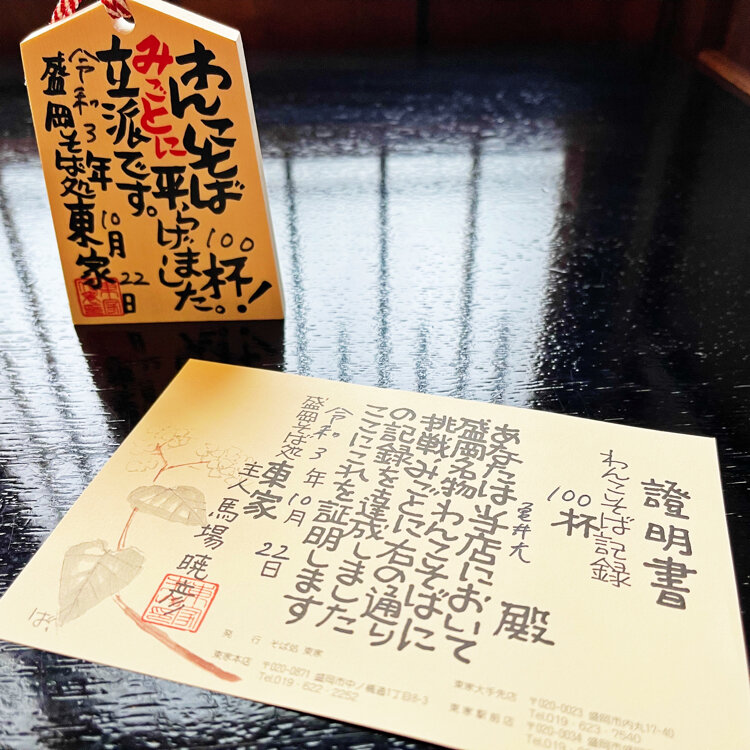 わんこそば100杯!
みごとに平らげました。
立派です。
令和3年10月22日
盛岡そば処東家
證明書
わんこそば記録
100杯
殿
あなたは当店において
盛岡名物わんこそばに
挑戦みごとに右の通り
の記録を達成しました
ここにこれを証明します
令和3年10月22日
盛岡そば処東家
主人馬場暁彦
発行 そば処 東家
東家本店 〒020-0871 盛岡市中ノ橋通1丁目8-3
Tel.019-622-2252
東家大手先店 〒020-0023 盛岡市内丸17-40
Tel.019 623-7540
東家駅前店 〒020-0034 盛岡市
Tel.019